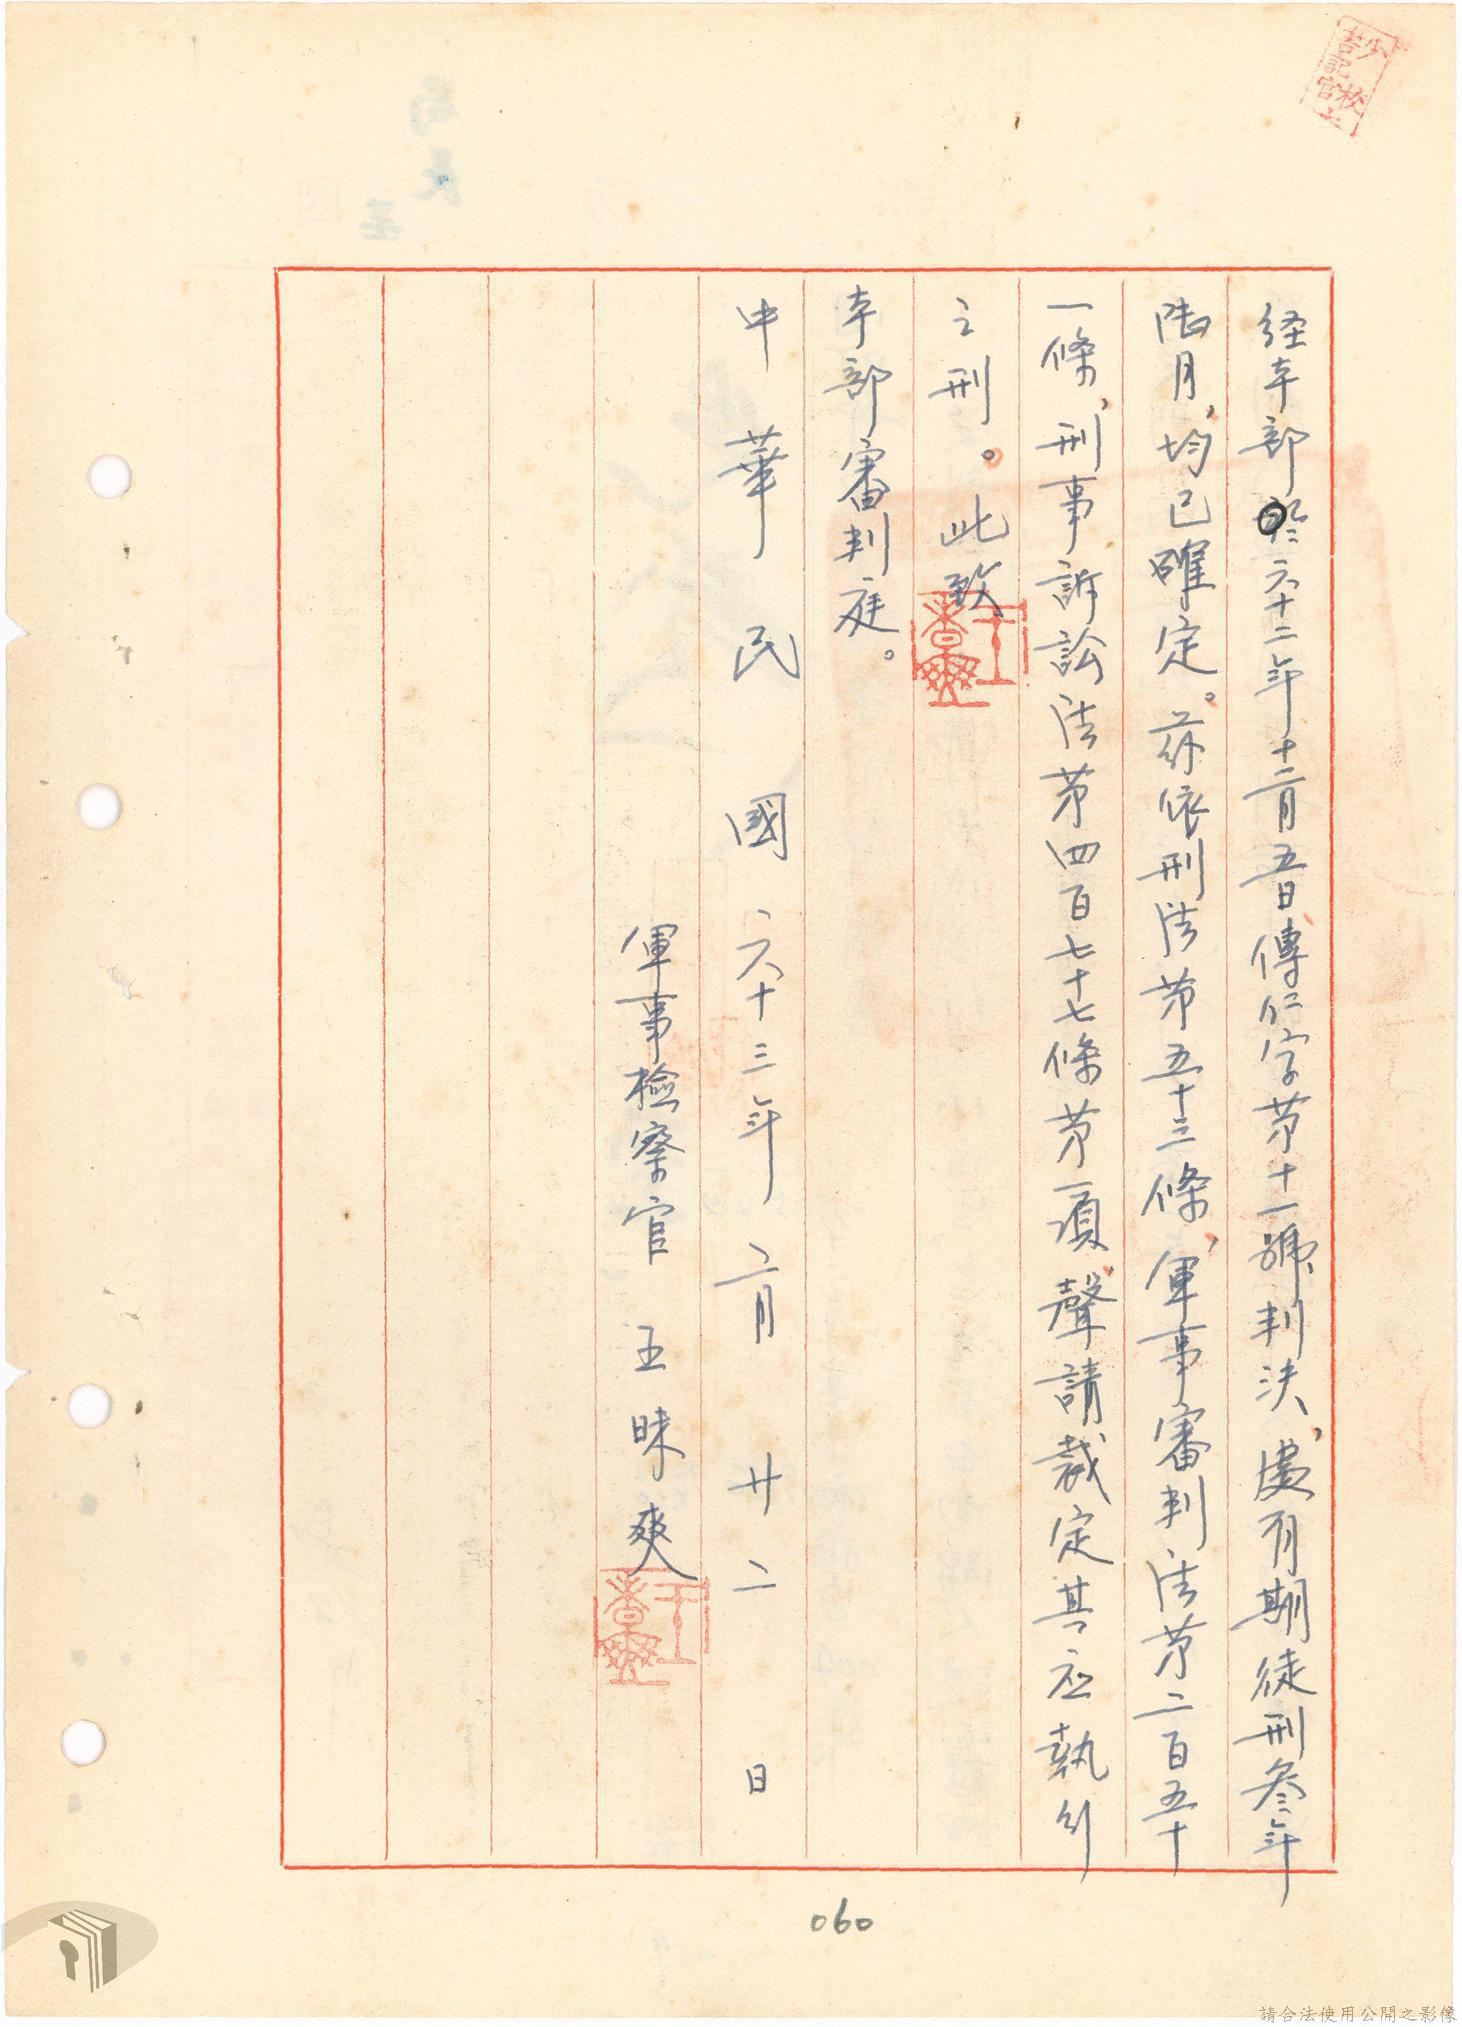 少校
書記官
經本部於六十二年十二月五日傳仁字第十一號判決，處有期徒刑叁年
陸月，均已確定。茲依刑法第五十三條，軍事審判法第二百五十
一條，刑事訴訟法第四百七十七條第一項，聲請裁定其应執行
之刑。此致
本部審判庭。
中華民國六十三年二月廿二日
軍事檢察官 王昧爽
060
請合法使用公開之影像